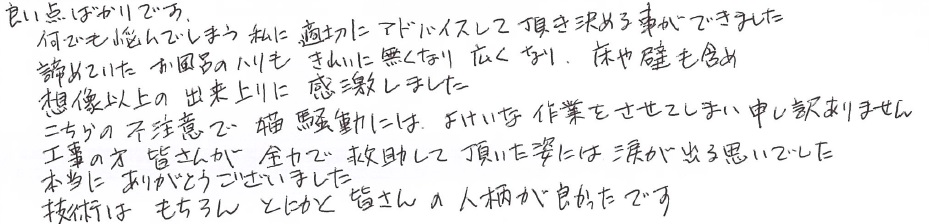 良い点ばかりです。
何でも悩んでしまう私に適切にアドバイスして頂き決める事ができました
諦めていたお風呂のハリもきれいに無くなり広くなり、床や壁も含め
想像以上の出来上りに感激しました
こちらの不注意で猫騒動には、よけいな作業をさせてしまい申し訳ありません
工事の方皆さんが全力で救助して頂いた姿には涙が出る思いでした
本当にありがとうございました
技術はもちろんとにかく皆さんの人柄が良かったです